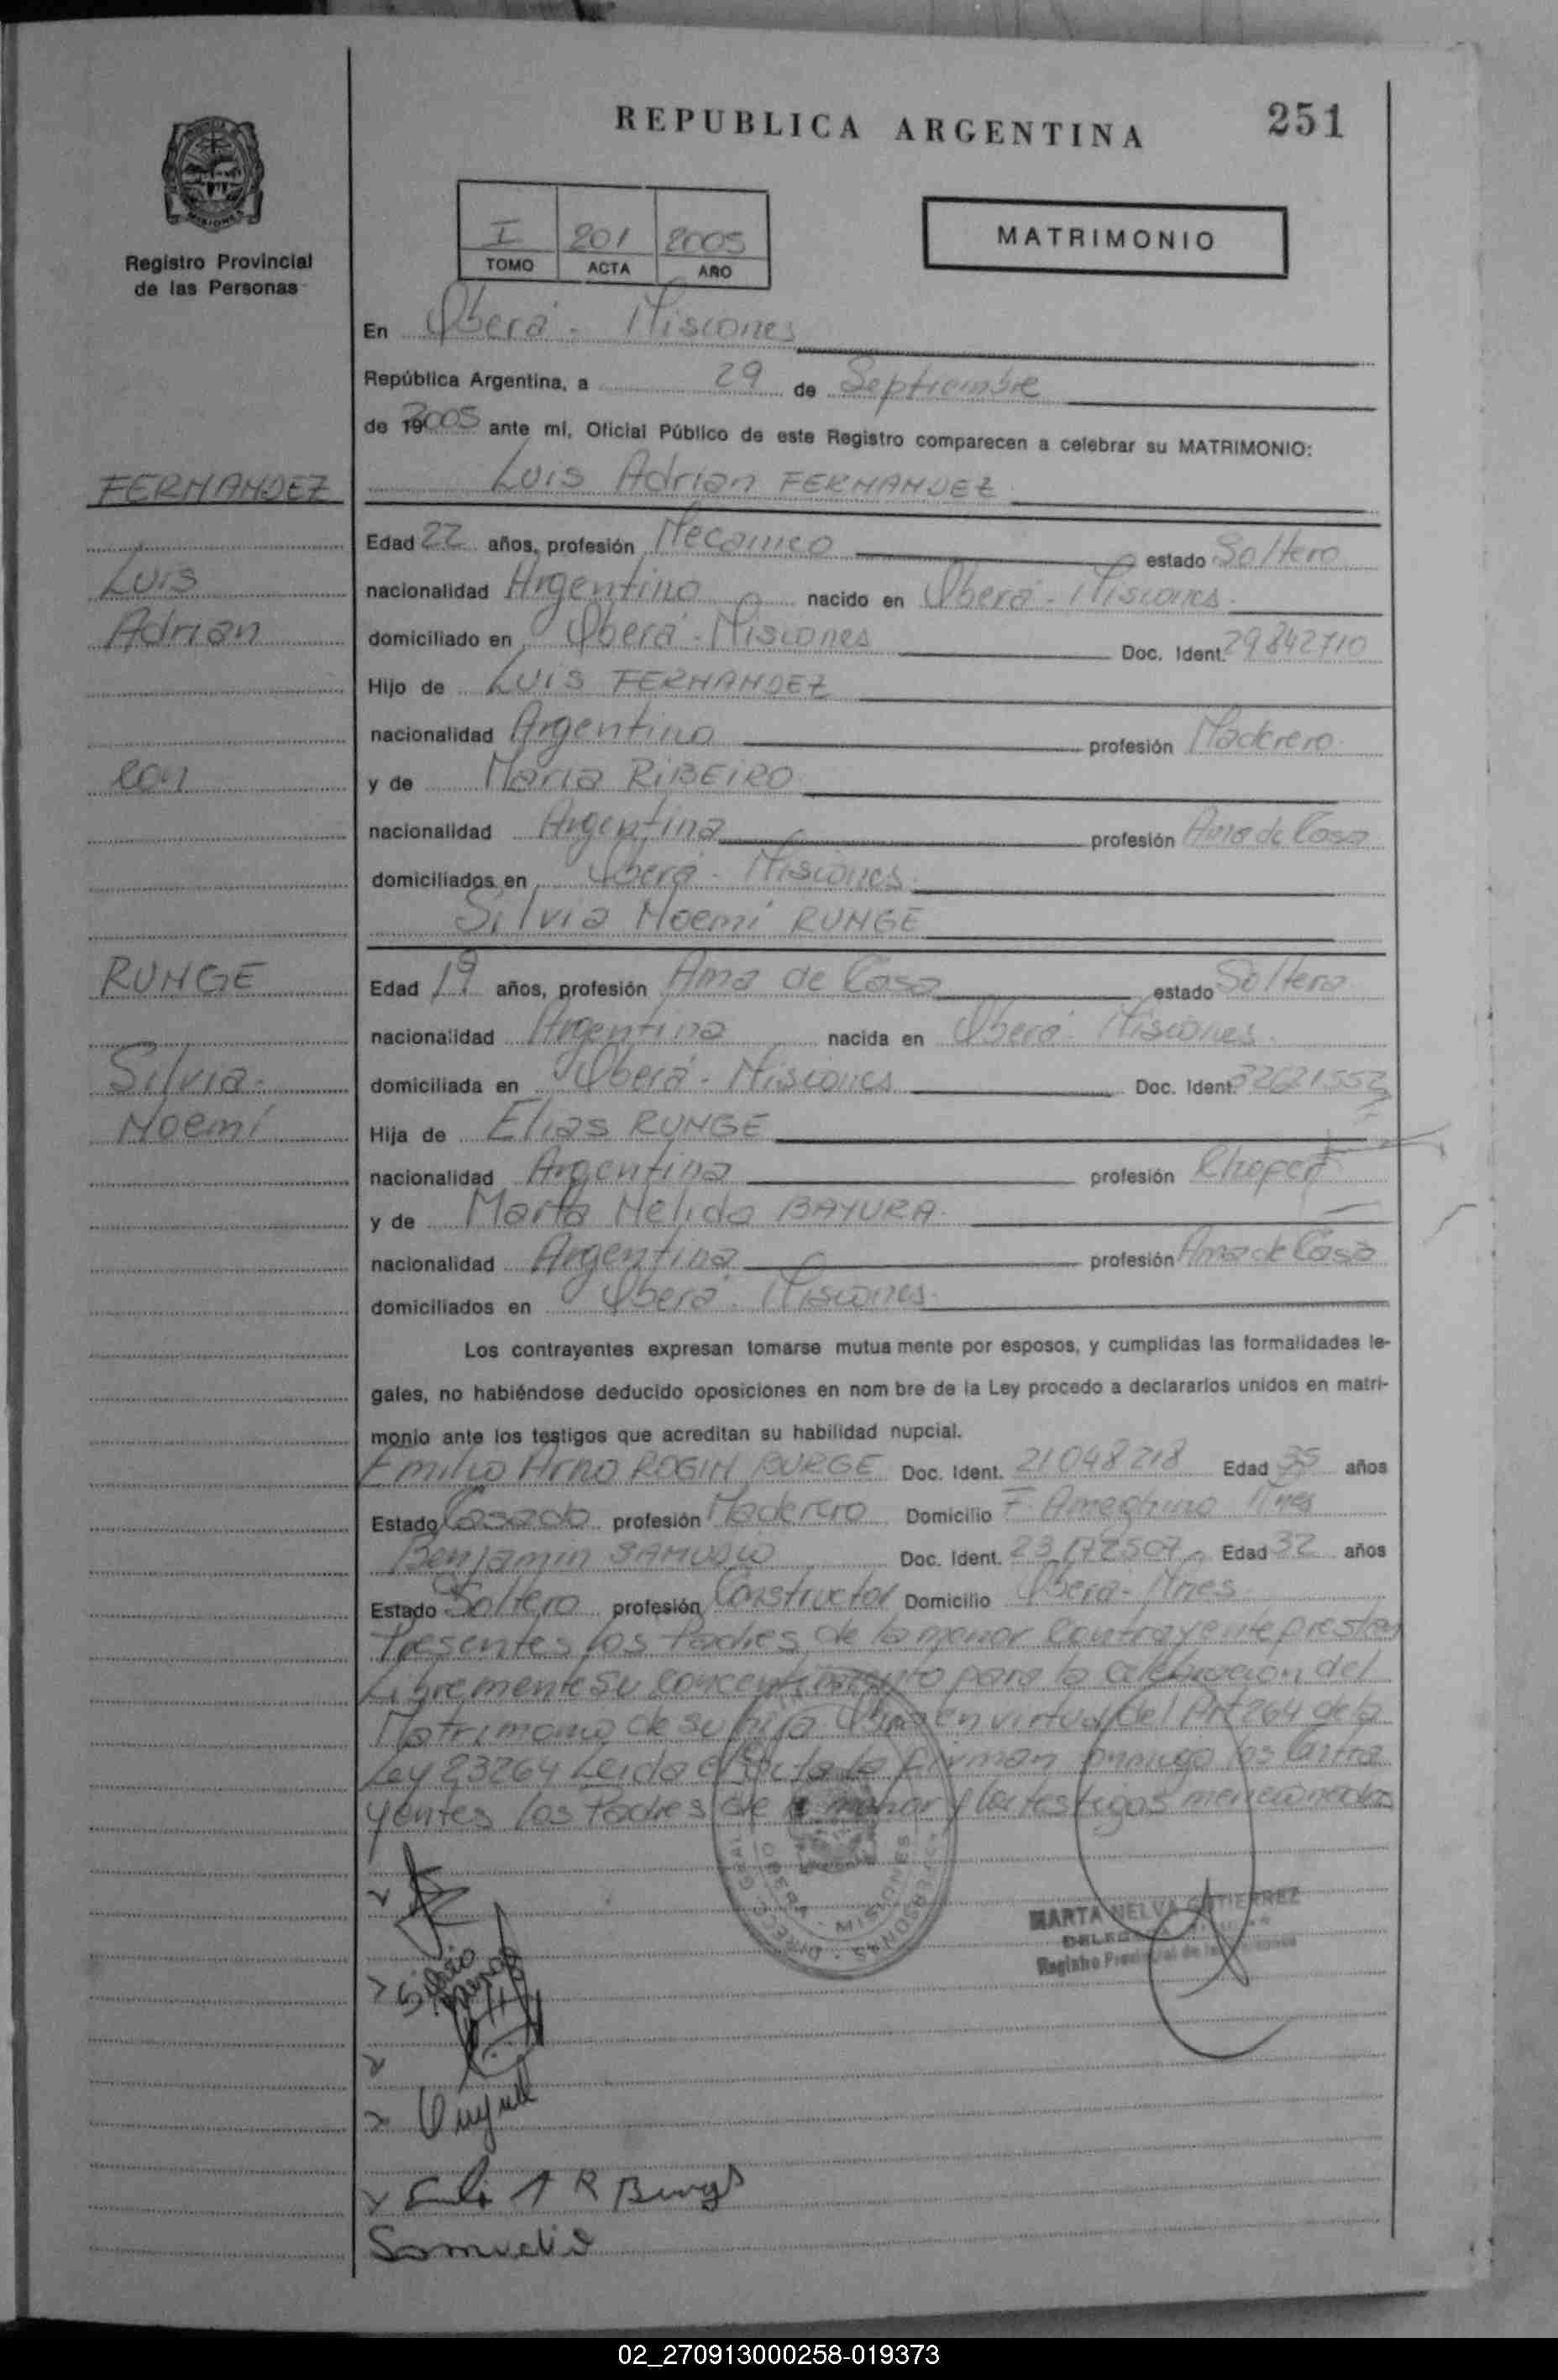 REPUBLICA ARGENTINA
251
Registro Provincial
de las Personas
I 201 2005
TOMO ACTA AÑO
MATRIMONIO
En Oberá - Misiones
República Argentina, a 29 de Septiembre
de 2005 ante mí, Oficial Público de este Registro comparecen a celebrar su MATRIMONIO:
FERNANDEZ
Luis Adrian FERNANDEZ
Edad 22 años, profesión Mecanico estado Soltero
Luis
nacionalidad Argentino nacido en Oberá - Misiones
Adrian
domiciliado en Oberá - Misiones Doc. Ident. 29842710
Hijo de Luis FERNANDEZ
nacionalidad Argentina profesión Maderero
con
y de Maria RIBEIRO
nacionalidad Argentina profesión Ama de Casa
domiciliados en Oberá - Misiones
Silvia Noemí RUNGE
RUNGE
Edad 19 años, profesión Ama de Casa estado Soltera
nacionalidad Argentina nacida en Oberá - Misiones
Silvia
domiciliada en Oberá - Misiones Doc. Ident. 32621552
Noemí
Hija de Elias RUNGE
nacionalidad Argentina profesión
y de Marta Nelida BAYURA
nacionalidad Argentina profesión Ama de Casa
domiciliados en Oberá - Misiones
Los contrayentes expresan tomarse mutua mente por esposos, y cumplidas las formalidades le-
gales, no habiéndose deducido oposiciones en nom bre de la Ley procedo a declararlos unidos en matri-
monio ante los testigos que acreditan su habilidad nupcial.
Emilio Arno ROGIN BURGE Doc. Ident. 21048218 Edad 35 años
Estado Casado profesión Maderero Domicilio F. Ameghino Mnes
Benjamin SAMUDIO Doc. Ident. 23172507 Edad 32 años
Estado Soltero profesión Constructor Domicilio Oberá - Mnes
Presentes los Padres de la menor Contrayente prestan
Libremente su concentimiento para la celebración del
Matrimonio de su hija en virtud del Art 264 de la
Ley 23264 Leida el Acta la firman conmigo los Contra
yentes los Padres de la menor y los testigos mencionados
OBERA - MISIONES
MARTA NELVA GUTIERREZ
Registro Provincial de las Personas
Silvia
R Burge
Samudio
02_270913000258-019373